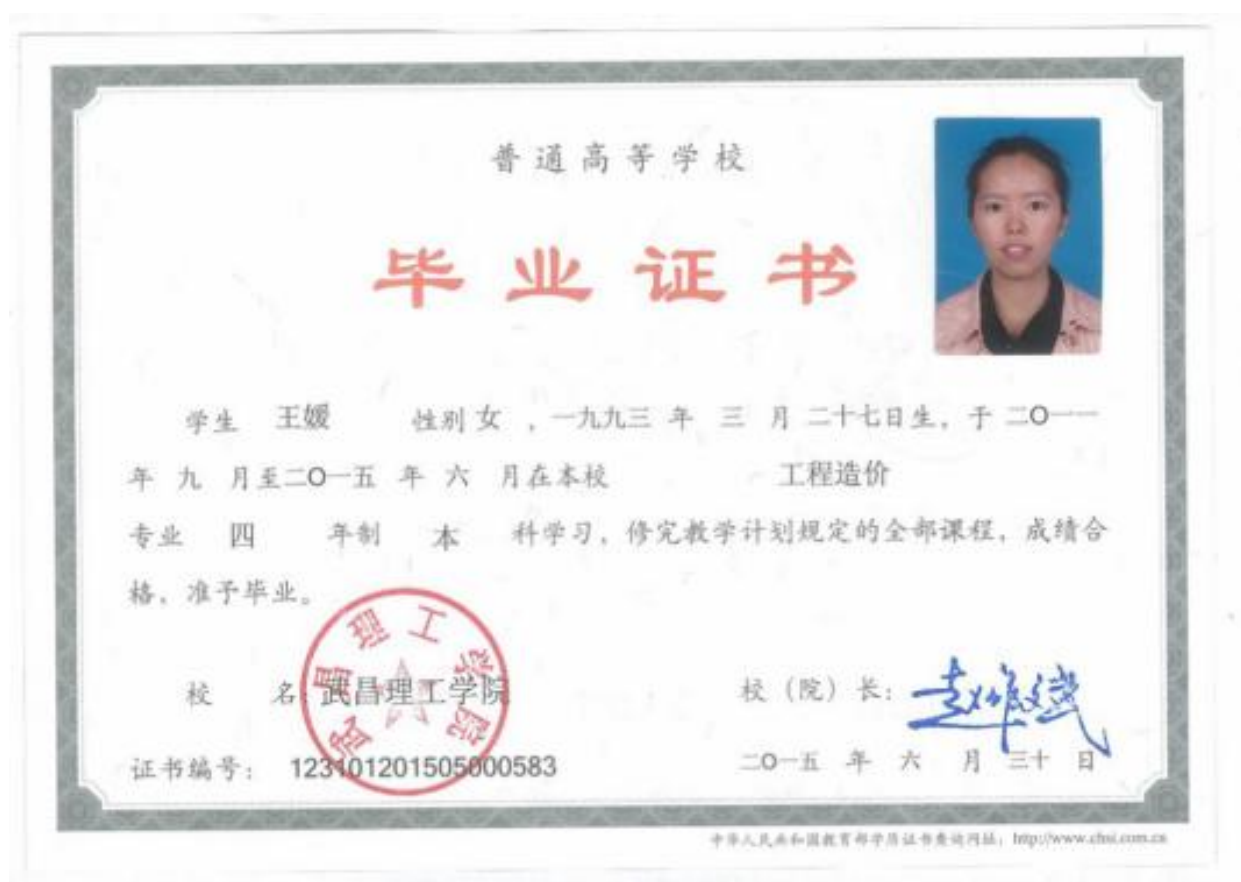 普通高等学校
毕业证书
学生 王媛 性别 女 ，一九九三 年 三 月 二十七日生，于 二O一一
年 九 月至二O一五 年 六 月在本校 工程造价
专业 四 年制 本 科学习，修完教学计划规定的全部课程，成绩合
格，准予毕业。
校 名：武昌理工学院
武昌理工学院
校（院）长：
证书编号： 123101201505000583
二O一五 年 六 月 三十 日
中华人民共和国教育部学历证书查询网址：http://www.chsi.com.cn